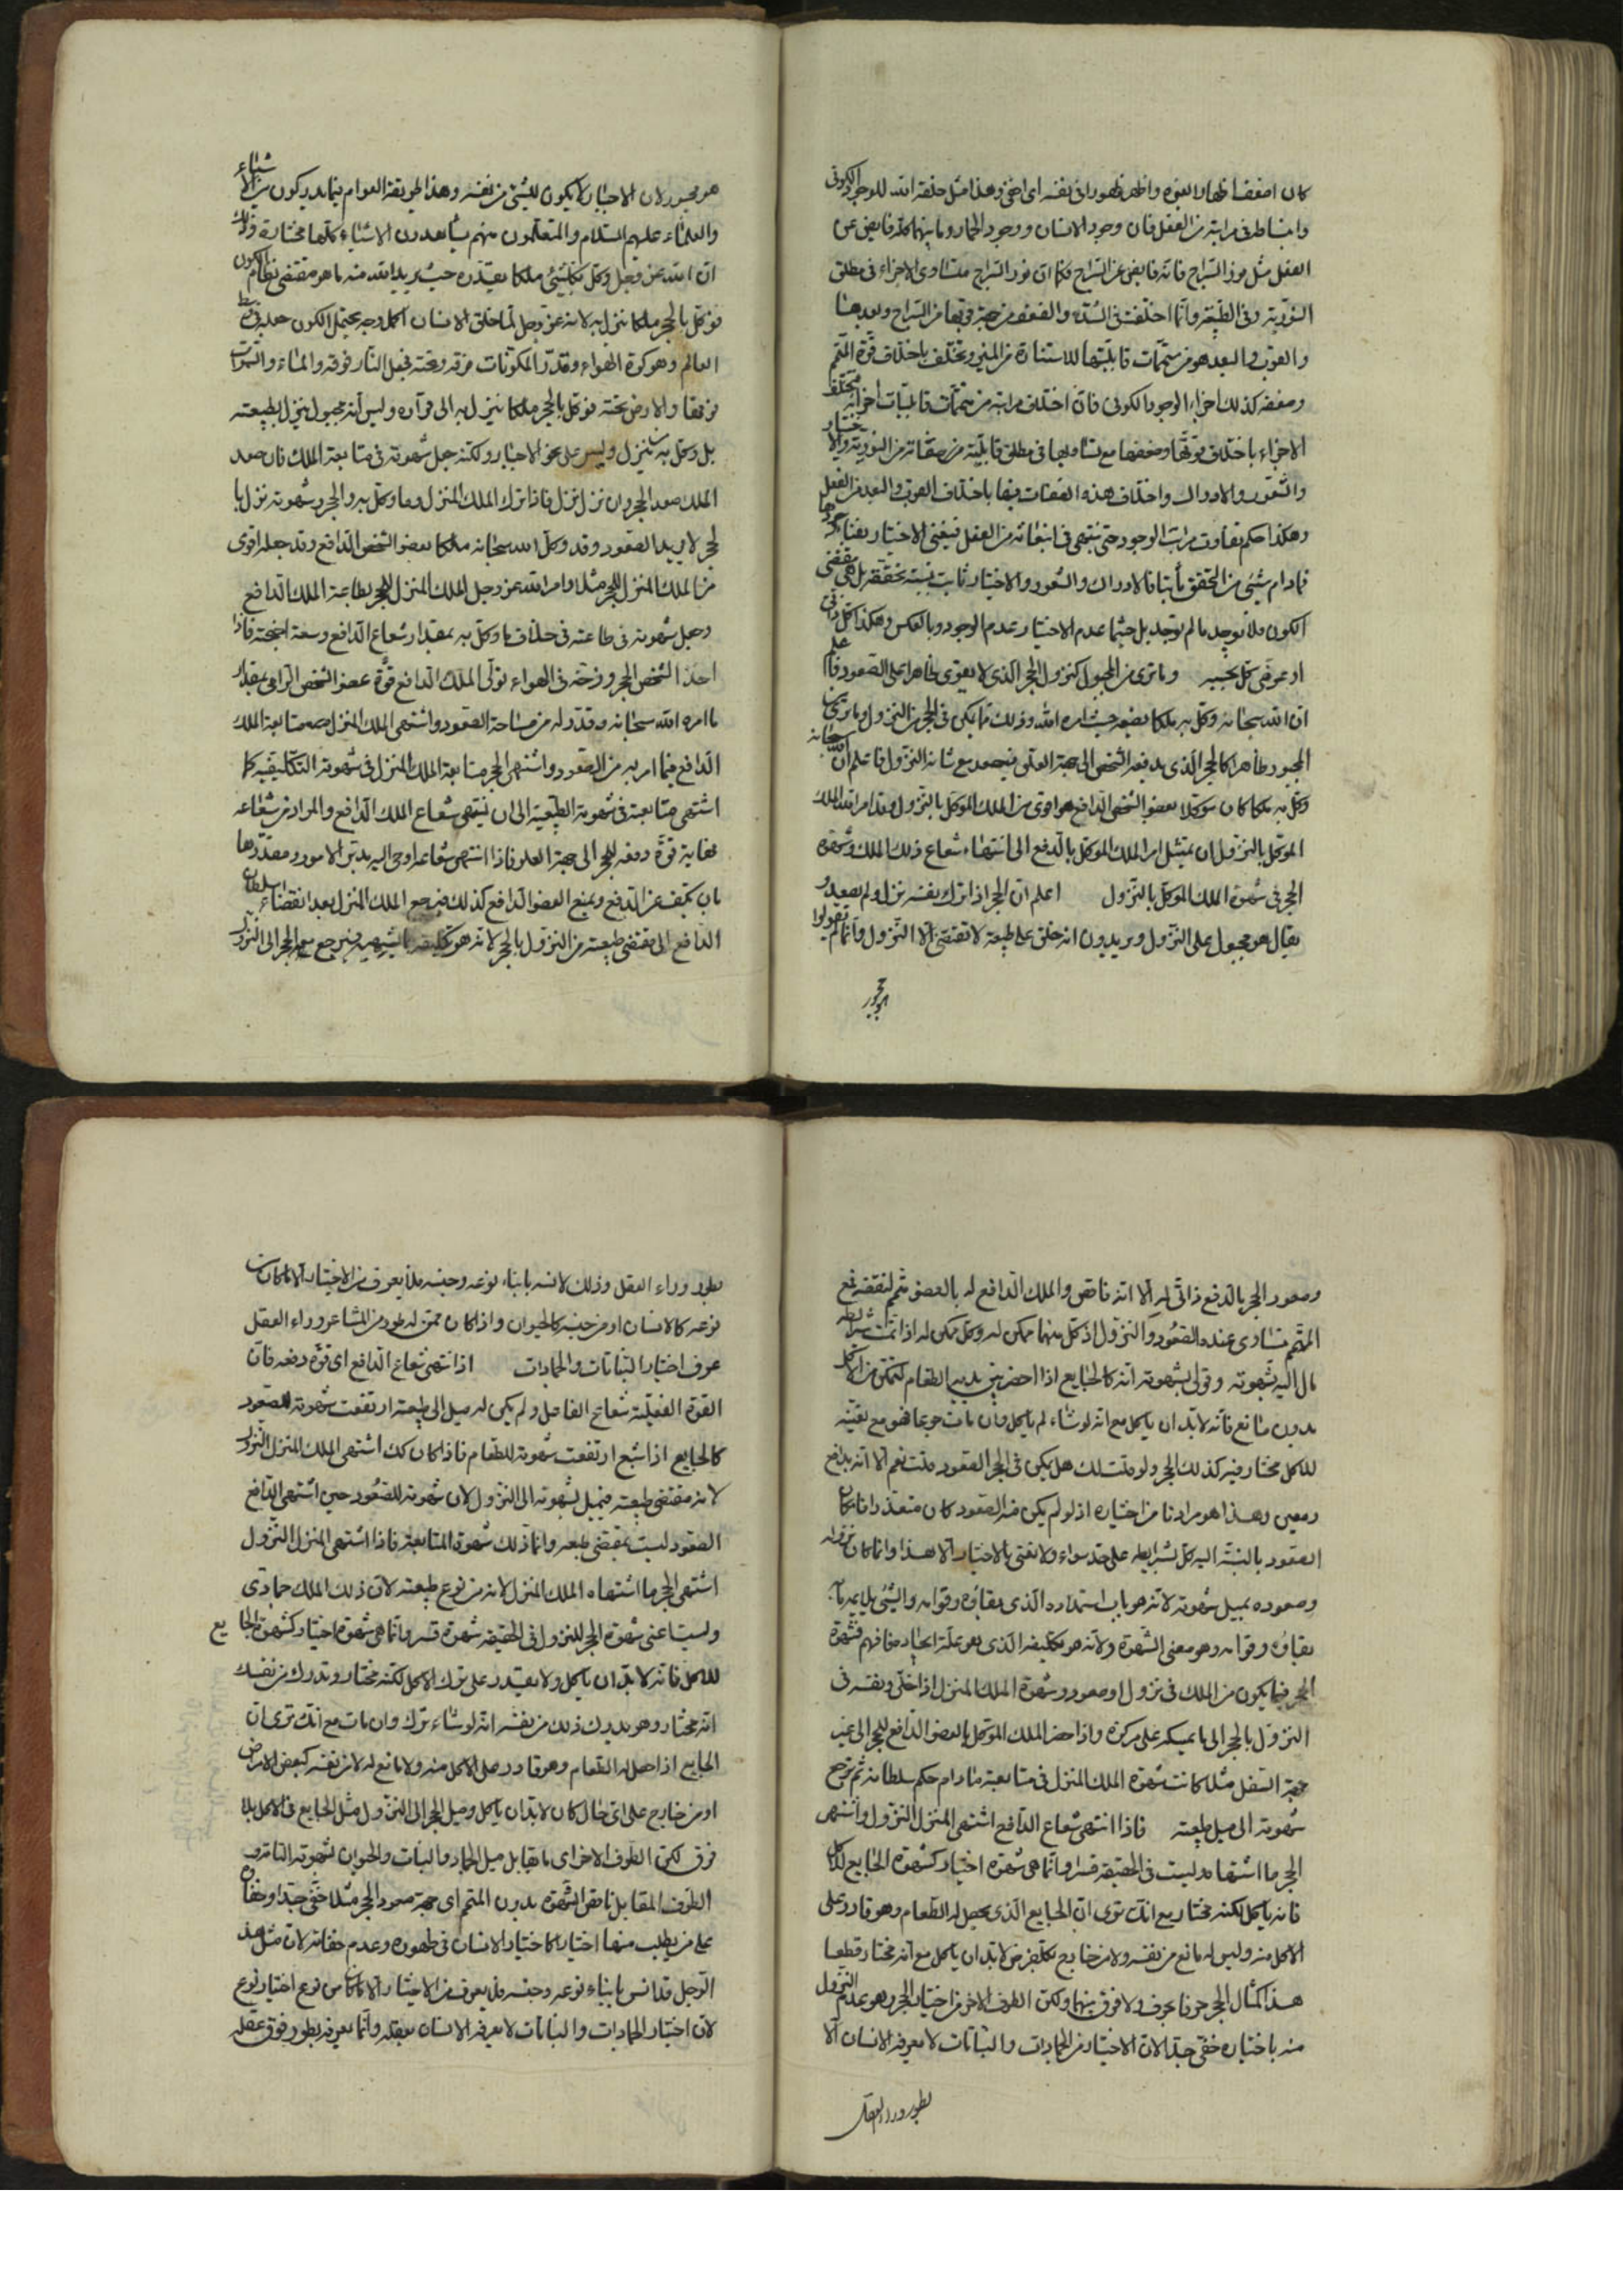 كان اضعفها ظهارا لغيره واظهر ظهورا في نفسه اى اخفى وهذا مثل خلقة الله للوجود الكونى
وانبساطه فى مراتبه من العقل فان وجود الانسان ووجود الجماد وما بينهما كله فايض عن
العقل مثل نور السّراج فانه فايض عن السّراج فكما انّ نور السّراج متساوى الاجزاء فى مطلق
النّوريّة وفى الطّبيعة وانّما اختلفت فى الشدّة والضّعف من جهة قربها من السّراج وبعدها
والقرب والبعد هو من متممات قابليتها للاستنارة من المنير وتختلف باختلاف قوّة المتمّم
وضعفه كذلك اجزاء الوجود الكونى فانّ اختلاف مراتبه من متمّمات قابليّات اجزائه فتختلف
الاجزاء باختلاف قوّتها وضعفها مع تساويها فى مطلق قابليّة من صفاته من النوريّة والاختيار
والشّعور والادراك واختلاف هذه الصّفات فيها باختلاف القرب والبعد من العقل
وهكذا حكم تفاوت مراتب الوجود حتى تنتهى فى انبعاثه من العقل فيفنى الاختيار بفناء وجودها
فمادام شيئى من المتحقق ثابتا فالادراك والشّعور والاختيار ثابت بنسبة تحقّقه بل هى مقتضى
الكون فلا يوجد ما لم توجد بل حيثما عدم الاختيار عدم الوجود وبالعكس وهكذا كل ذاتى
او عرضى كل بحسبه وما ترى من المجبول كنزول الحجر الّذى لا يقوى ظاهرا على الصّعود فاعلم
انّ الله سبحانه وكّل به ملكا يضعه حيث امره الله وذلك ما يمكن فى الحجر من النزول وما ترى من
المجبور ظاهرا كالحجر الّذى يدفعه الشّخص الى جهة العلو فيصعد مع شانه النّزول فاعلم انّ الله سبحانه
وكّل به ملكا كان موكلا بعضو الشّخص الدّافع هو اقوى من الملك الموكل بالنّزول وقد امر الله الملك
الموكل بالنّزول ان يمتثل امر الملك الموكل بالدّفع الى انتهاء شعاع ذلك الملك وشهوة
الحجر فى شهوة الملك الموكل بالنّزول اعلم انّ الحجر اذا ترك بنفسه نزل ولم يصعد و
يقال هو مجبول على النّزول ويريدون انه خلق على طبيعة لا تقتضى الا النّزول وانّما لم يقولوا
هو مجبور
هو مجبور لان الاجبار لا يكون للشيئى من نفسه وهذا طريقة العوام فيما يدركون من الاشياء
والعلماء عليهم السّلام والمتعلّمون منهم يشاهدون الاشياء كلّها مختارة وذلك
انّ الله عز وجل وكّل بكلّ شيئى ملكا يقدّره حيث يريد الله منه ما هو مقتضى نظام الكون
فوكّل بالحجر ملكا ينزل به لانه عز وجل لمّا خلق الانسان اكمل وجه يحتمل الكون جعله فى وسط
العالم وهو كرة الهواء وقدّر المكوّنات فوقه وتحته فجعل النّار فوقه والماء والسّموات
فوقها والارض تحته فوكّل بالحجر ملكا ينزل به الى قراره وليس انه مجبول ينزل بطبيعته
بل وكّل به من ينزل وليس على نحو الاجبار ولكنّه جعل شهوته فى متابعة الملك فان صعد
الملك صعد الحجر وان نزل نزل فاذا ترك الملك المنزل وما وكّل به والحجر وشهوته نزل با
لحجر لا يريد الصّعود وقد وكّل الله سبحانه ملكا بعضو الشّخص الدّافع وقد جعله اقوى
من الملك المنزل للحجر مثلا وامر الله عز وجل الملك المنزل للحجر بطاعة الملك الدّافع
وجعل شهوته فى طاعته فى خلاف ما وكّل به بمقدار شعاع الدّافع وسعة اجنحته فاذا
اخذ الشّخص الحجر وزخّه فى الهواء تولّى الملك الدّافع قوّة عضو الشّخص الرّامى بمقدار
ما امره الله سبحانه وقدّر له من مسافة الصّعود واشتهى الملك المنزل متابعة الملك
الدّافع فيما امر به من الصّعود واشتهى الحجر متابعة الملك المنزل فى شهوته التّكليفيّة كما
اشتهى متابعته فى شهوته الطّبيعيّة الى ان ينتهى شعاع الملك الدّافع والمراد من شعاعه
نهاية قوّة دفعه للحجر الى جهة العلو فاذا انتهى شعاعه اوحى اليه مدبّر الامور ومقدّرها
بان يكف عن الدّفع ويمنع العضو الدّافع كذلك فيرجع الملك المنزل بعد انقضاء سلطان
الدّافع الى مقتضى طبيعته من النّزول بالحجر لانه هو تكليفه فيرجع معه الحجر الى النّزول
وصعود الحجر بالدّفع ذاتّى له الا انّه ناقص والملك الدّافع له بالعضو متمّم لنقصه فمع
المتمّم متساوى عنده الصّعود والنّزول اذ كل منهما ممكن له وكل ممكن له اذا تمّت شرايطه
مال اليه بشهوته وقولى بشهوته انّه كالجايع اذا احضر بين يديه الطّعام لتمكن من الاكل
بدون مانع فانّه لابدّ ان ياكل مع انّه لو شاء لم ياكل وان مات جوعا فهو مع تعيّنه
للاكل مختار فيه كذلك الحجر ولو قلت لك هل يمكن فى الحجر الصّعود قلت نعم الا انّه بدافع
ومعين وهذا هو مرادنا من اختياره اذ لو لم يكن فيه الصّعود كان متعذّرا فامكان
الصّعود بالنّسبة اليه كل بشرايطه على حدّ سواء ولا نعنى بالاختيار الا هذا وانّما كان نزوله
وصعوده بميل شهوته لانّه هو باب استمداده الّذى بقاؤه وقوامه والشّيئى يلايم ما به
بقاؤه وقوامه وهو معنى الشّهوة ولانّه هو تكليفه الّذى هو علّة ايجاده فافهم فشهوة
الحجر فيما يكون من الملك فى نزول او صعود وشهوة الملك المنزل اذا خلّى ونفسه فى
النّزول بالحجر الى ما يمسكه على مركزه واذا حضر الملك الموكل بالعضو الدّافع للحجر الى غير
جهة السّفل مثلا كانت شهوة الملك المنزل فى متابعته مادام حكم سلطانه ثمّ ترجع
شهوته الى ميل طبيعته فاذا انتهى شعاع الدّافع اشتهى المنزل النّزول واشتهى
الحجر ما اشتهاه وليست فى الحقيقة قسرا وانّما هى شهوة اختيار كشهوة الجايع للاكل
فانه ياكل لكنّه مختار مع انّك ترى انّ الجايع الّذى يحصل له الطّعام وهو قادر على
الاكل منه وليس له مانع من نفسه ولا من خارج لابدّ ان ياكل مع انّه مختار قطعا
هذا كمثال الحجر حرفا بحرف ولا فرق بينهما ولكن الطرف الاخر من اختيار الحجر وهو عدم النّزول
منه باختياره خفى جدّا لان الاختيار من الجمادات والنّباتات لا يعرفه الانسان الا
بطور وراء العقل
بطور وراء العقل وذلك لانسه بابناء نوعه وجنسه فلا يعرف من الاختيار الا ما كان من
نوعه كالانسان او من جنسه كالحيوان واذا كان ممّن له طور من المشاعر وراء العقل
عرف اختيار النّباتات والجمادات اذا انتهى شعاع الدّافع اى قوّة دفعه فانّ
القوّة الفعليّة شعاع الفاعل ولم يكن له ميل الى طبيعته ارتفعت شهوته للصّعود
كالجايع اذا شبع ارتفعت شهوته للطّعام فاذا كان كك اشتهى الملك المنزل النّزول
لانه مقتضى طبيعته فيميل بشهوته الى النّزول لان شهوته للصّعود حين اشتهى الدّافع
الصّعود ليست بمقتضى طبعه وانّما ذلك شهوة المتابعة فاذا اشتهى المنزل النّزول
اشتهى الحجر ما اشتهاه الملك المنزل لانه من نوع طبيعته لان ذلك الملك جمادى
وليست اعنى شهوة الحجر للنّزول فى الحقيقه شهوة قسر وانّما هى شهوة اختيار كشهوة الجايع
للاكل فانه لابدّ ان ياكل ولا يقدر على ترك الاكل لكنّه مختار وتدرك من نفسك
انّه مختار وهو يدرك ذلك من نفسه انّه لو شاء ترك وان مات مع انّك ترى انّ
الجايع اذا حصل له الطّعام وهو قادر على الاكل منه ولا مانع له لا من نفسه كبعض الامراض
او من خارج على اى حال كان لابدّ ان ياكل وميل الحجر الى النّزول مثل الجايع فى الاكل بلا
فرق لكن الطرف الاخر اى ما يقابل ميل الجماد والنبات والحيوان لشهوته
الطّرف المقابل ناقص الشّهوة بدون المتمّم اى جهة صعود الحجر مثلا خفى جدّا وخفاؤه
على من يطلب منها اختيارا كاختيار الانسان فى ظهوره وعدم خفائه لان مثل هذا
الرّجل قد انس بابناء نوعه وجنسه فلا يعرف من الاختيار الا ما كان من نوع اختيار نوعه
لان اختيار الجمادات والنباتات لا يعرفه الانسان بعقله وانّما يعرفه بطور فوق عقله